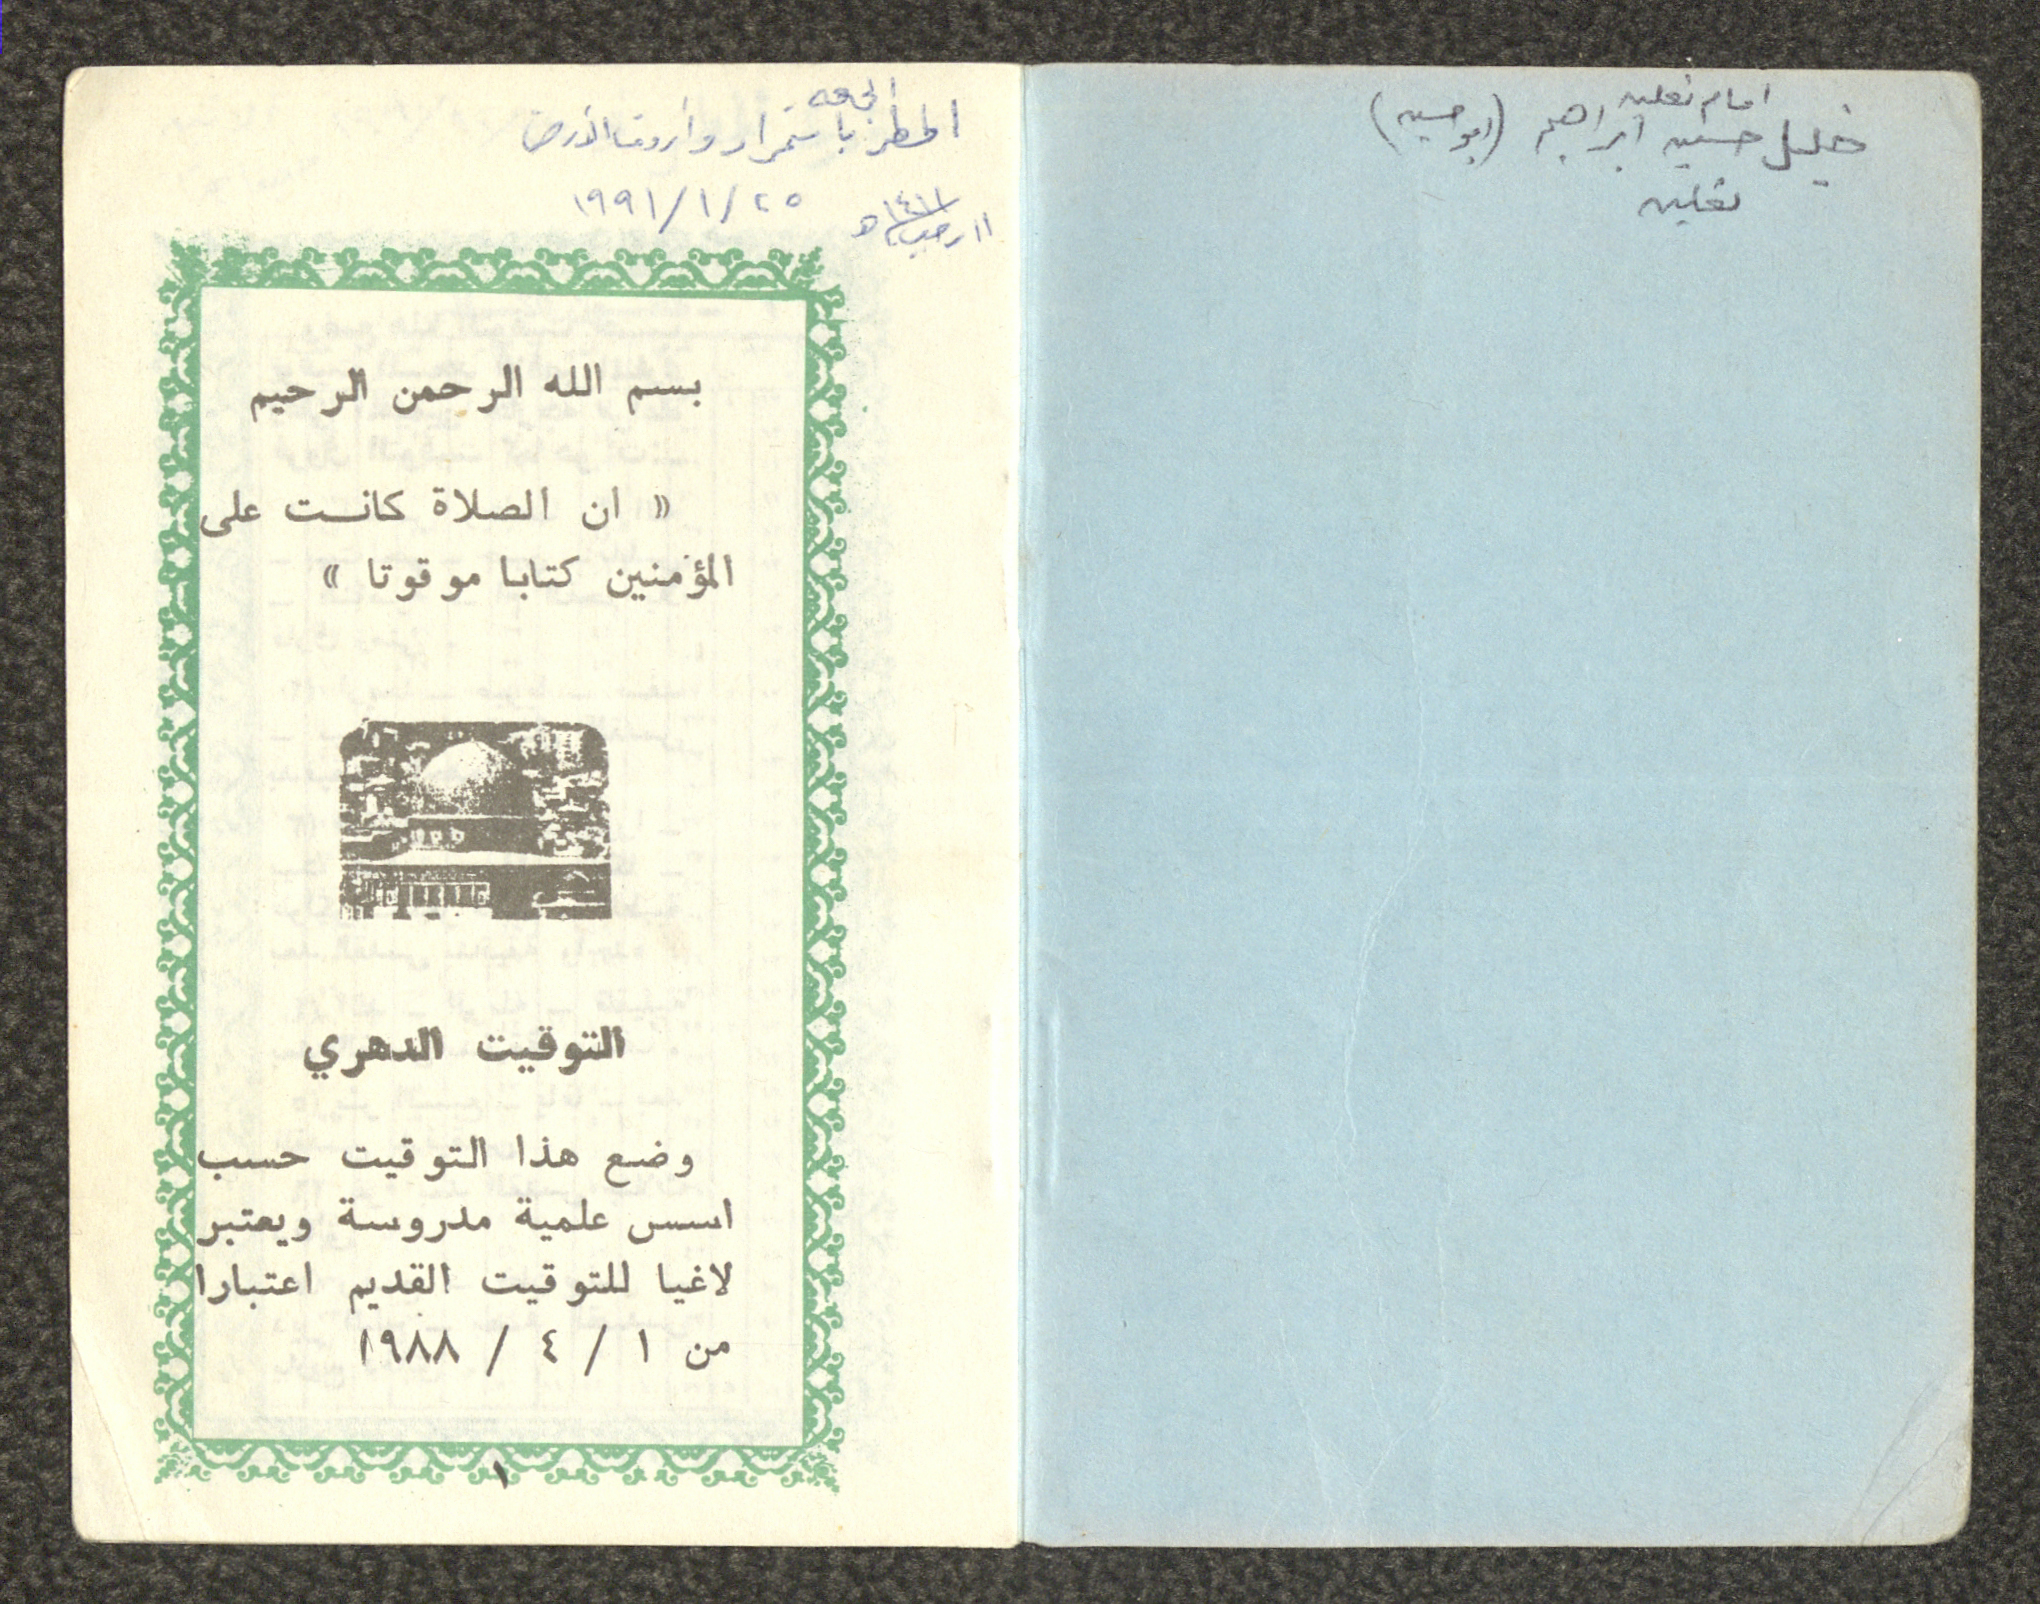 امام نعلين
خليل حسين ابراهيم (ابو حسين)
نعلين
الجمعه
المطر باستمرار وأروت الأرض
٢٥/١/١٩٩١
١١ رجب ١٤١١ هـ
بسم الله الرحمن الرحيم
« ان الصلاة كانت على
المؤمنين كتابا موقوتا »
التوقيت الدهري
وضع هذا التوقيت حسب
اسس علمية مدروسة ويعتبر
لاغيا للتوقيت القديم اعتبارا
من ١ / ٤ / ١٩٨٨
١